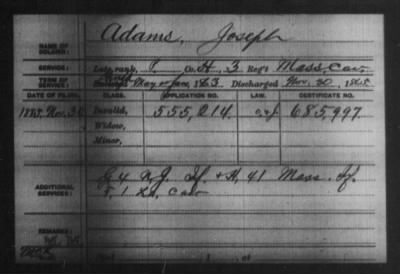 Adams, Joseph
NAME OF SOLDIER:
SERVICE: Late rank, P. Co. H, 3 Reg't Mass. Cav.
TERM OF SERVICE: Enlisted May or June, 1863 Discharged Nov. 30, 1865
DATE OF FILING. CLASS. APPLICATION NO. LAW. CERTIFICATE NO.
Nov. 30 Invalid, 555,214. 685,997.
Widow,
Minor,
ADDITIONAL SERVICES: G 4 N.J. If. & H, 41 Mass. If.
F, 1 La. Cav
REMARKS: